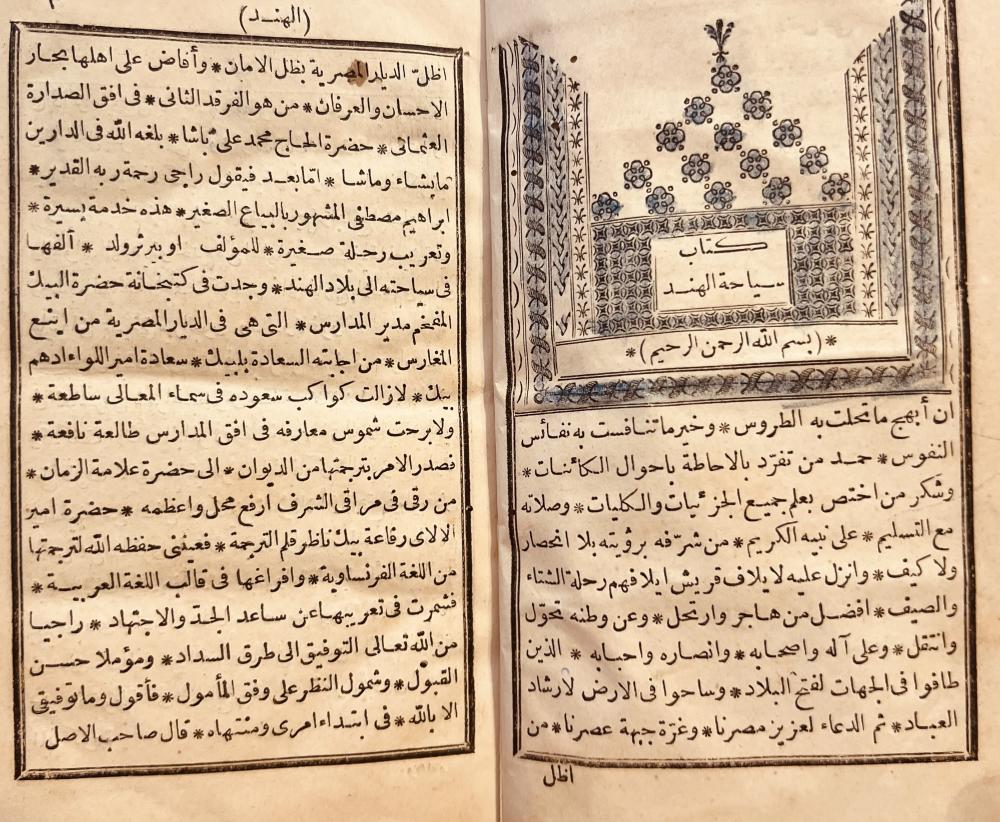 كتاب
سياحة الهند
*(بسم الله الرحمن الرحيم)*
ان أبهج ما تحلت به الطروس * وخير ما تنافست به نفائس
النفوس * حمد من تفرّد بالاحاطة باحوال الكائنات *
وشكر من اختص بعلم جميع الجزئيات والكليات * وصلاته
مع التسليم * على نبيه الكريم * من شرّفه برؤيته بلا انحصار
ولا كيف * وانزل عليه لايلاف قريش ايلافهم رحلة الشتاء
والصيف * افضل من هاجر وارتحل * وعن وطنه تحوّل
وانتقل * وعلى آله واصحابه * وانصاره واحبابه * الذين
طافوا فى الجهات لفتح البلاد * وساحوا فى الارض لارشاد
العباد * ثم الدعاء لعزيز مصرنا * وغرّة جبهة عصرنا * من
اظل
(الهند)
اظلّ الديار المصرية بظل الامان * وأفاض على اهلها بحار
الاحسان والعرفان * من هو الفرقد الثانى * فى افق الصدارة
العثمانى * حضرة الحاج محمد على باشا * بلغه الله فى الدارين
ما يشاء وماشا * امّا بعد فيقول راجى رحمة ربه القدير *
ابراهيم مصطفى المشهور بالبياع الصغير * هذه خدمة يسيرة *
وتعريب رحلة صغيرة * للمؤلف اوبنرثرولد * ألفها
فى سياحته الى بلاد الهند * وجدت فى كتبخانة حضرة البيك
المفخم مدير المدارس * التى هى فى الديار المصرية من اينع
المغارس * من اجابته السعادة بلبيك * سعادة امير اللواء ادهم
بيك * لازالت كواكب سعوده فى سماء المعالى ساطعة *
ولا برحت شموس معارفه فى افق المدارس طالعة نافعة *
فصدر الامر بترجمتها من الديوان * الى حضرة علامة الزمان *
من رقى فى مراقى الشرف أرفع محل واعظمه * حضرة امير
الالاى رفاعة بيك ناظر قلم الترجمة * فعيننى حفظه الله لترجمتها
من اللغة الفرنساوية * وافراغها فى قالب اللغة العربية *
فشمرت فى تعريبها عن ساعد الجدّ والاجتهاد * راجيا
من الله تعالى التوفيق الى طرق السداد * ومؤملا حسن
القبول * وشمول النظر على وفق المأمول * فأقول وما توفيقى
الا بالله * فى ابتداء امرى ومنتهاه * قال صاحب الاصل